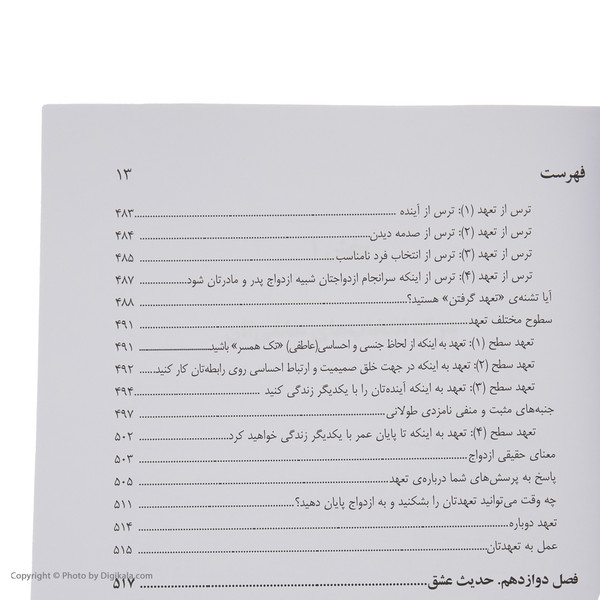 فهرست ۱۳
ترس از تعهد (۱): ترس از آینده ۴۸۳
ترس از تعهد (۲): ترس از صدمه دیدن ۴۸۴
ترس از تعهد (۳): ترس از انتخاب فرد نامناسب ۴۸۵
ترس از تعهد (۴): ترس از اینکه سرانجام ازدواجتان شبیه ازدواج پدر و مادرتان شود ۴۸۷
آیا تشنه‌ی «تعهد گرفتن» هستید؟ ۴۸۸
سطوح مختلف تعهد ۴۹۱
تعهد سطح (۱): تعهد به اینکه از لحاظ جنسی و احساسی(عاطفی) «تک همسر» باشید ۴۹۱
تعهد سطح (۲): تعهد به اینکه در جهت خلق صمیمیت و ارتباط احساسی روی رابطه‌تان کار کنید ۴۹۲
تعهد سطح (۳): تعهد به اینکه آینده‌تان را با یکدیگر زندگی کنید ۴۹۴
جنبه‌های مثبت و منفی نامزدی طولانی ۴۹۷
تعهد سطح (۴): تعهد به اینکه تا پایان عمر با یکدیگر زندگی خواهید کرد ۵۰۲
معنای حقیقی ازدواج ۵۰۳
پاسخ به پرسش‌های شما درباره‌ی تعهد ۵۰۵
چه وقت می‌توانید تعهدتان را بشکنید و به ازدواج پایان دهید؟ ۵۱۱
تعهد دوباره ۵۱۴
عمل به تعهدتان ۵۱۵
فصل دوازدهم. حدیث عشق ۵۱۷
Copyright © Photo by Digikala.com